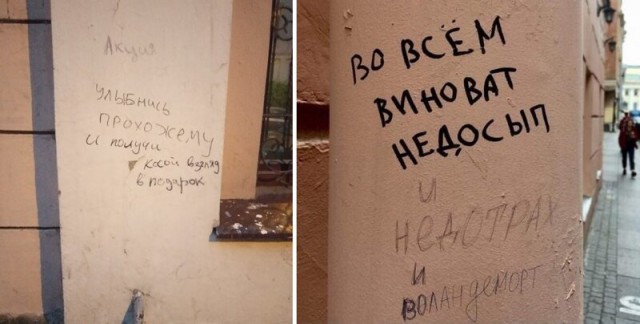 Акция
УЛЫБНИСЬ
ПРОХОЖЕМУ
И получи
косой взгляд
в подарок
ВО ВСЁМ
ВИНОВАТ
НЕДОСЫП
и
НЕДОТРАХ
и
ВОЛАНДЕМОРТ